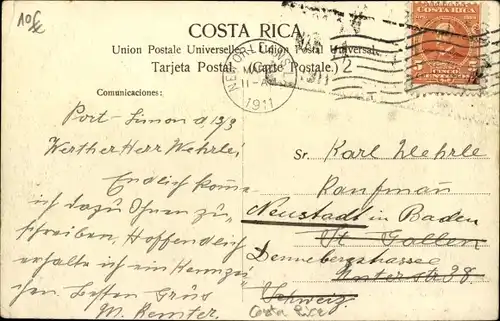 10€
COSTA RICA
Union Postale Universelle. - Union Postal Universal.
Tarjeta Postal. (Carte Postale.)
Comunicaciones:
NEW YORK
11-A
1911
2
COSTA RICA
CINCO
Port-Limon d 13/3
Werther Herr Wehrle,
Endlich komme
ich dazu Ihnen zu
schreiben, Hoffendlich
erhalte ich ein Kennzei
chen Besten Gruss
M.
Sr. Karl Wehrle
Kaufman
Neustadt in Baden
St Gallen
Dennebergstrasse
Unterstr. 28.
Schweiz
Costa Rica